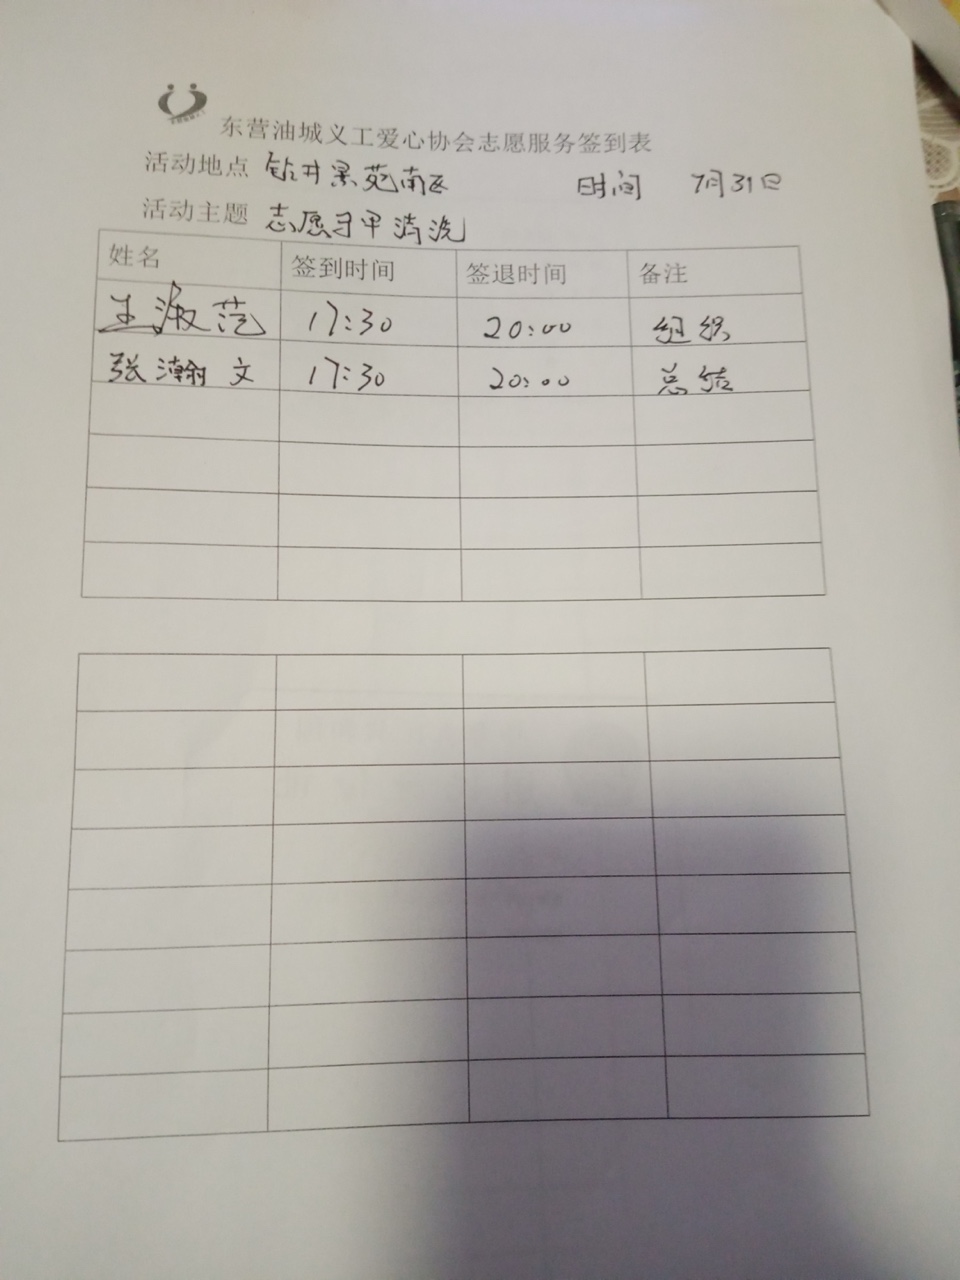 东营油城义工爱心协会志愿服务签到表
活动地点 钻井景苑南区 时间 7月31日
活动主题 志愿马甲清洗
姓名 签到时间 签退时间 备注
王淑范 17:30 20:00 组织
张瀚文 17:30 20:00 总结